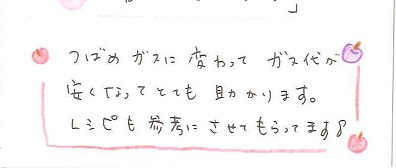 」
つばめガスに変わって ガス代が
安くなってとても助かります。
レシピも参考にさせてもらってます♪